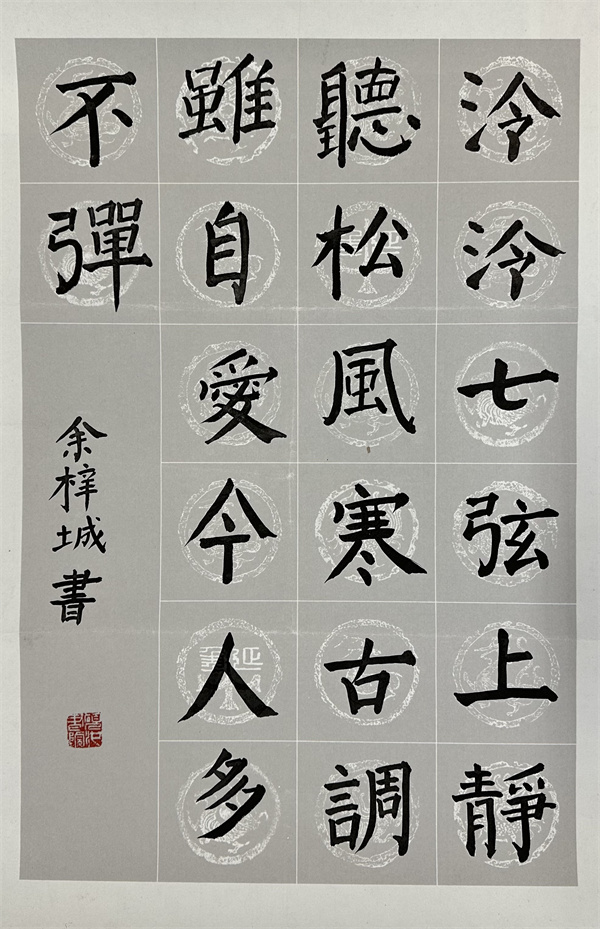 泠泠七弦上靜
聽松風寒古調
雖自愛今人多
不彈
余梓城書